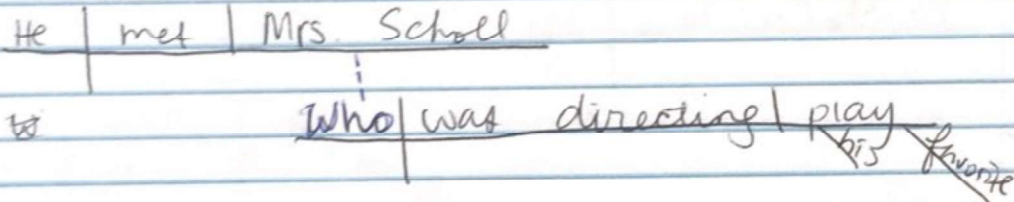 He met Mrs. Scholl
Who was directing play
his favorite